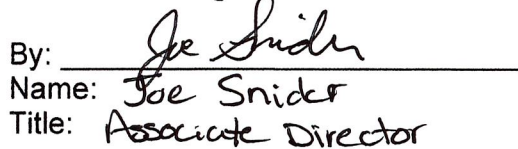 By: Joe Snider
Name: Joe Snider
Title: Associate Director